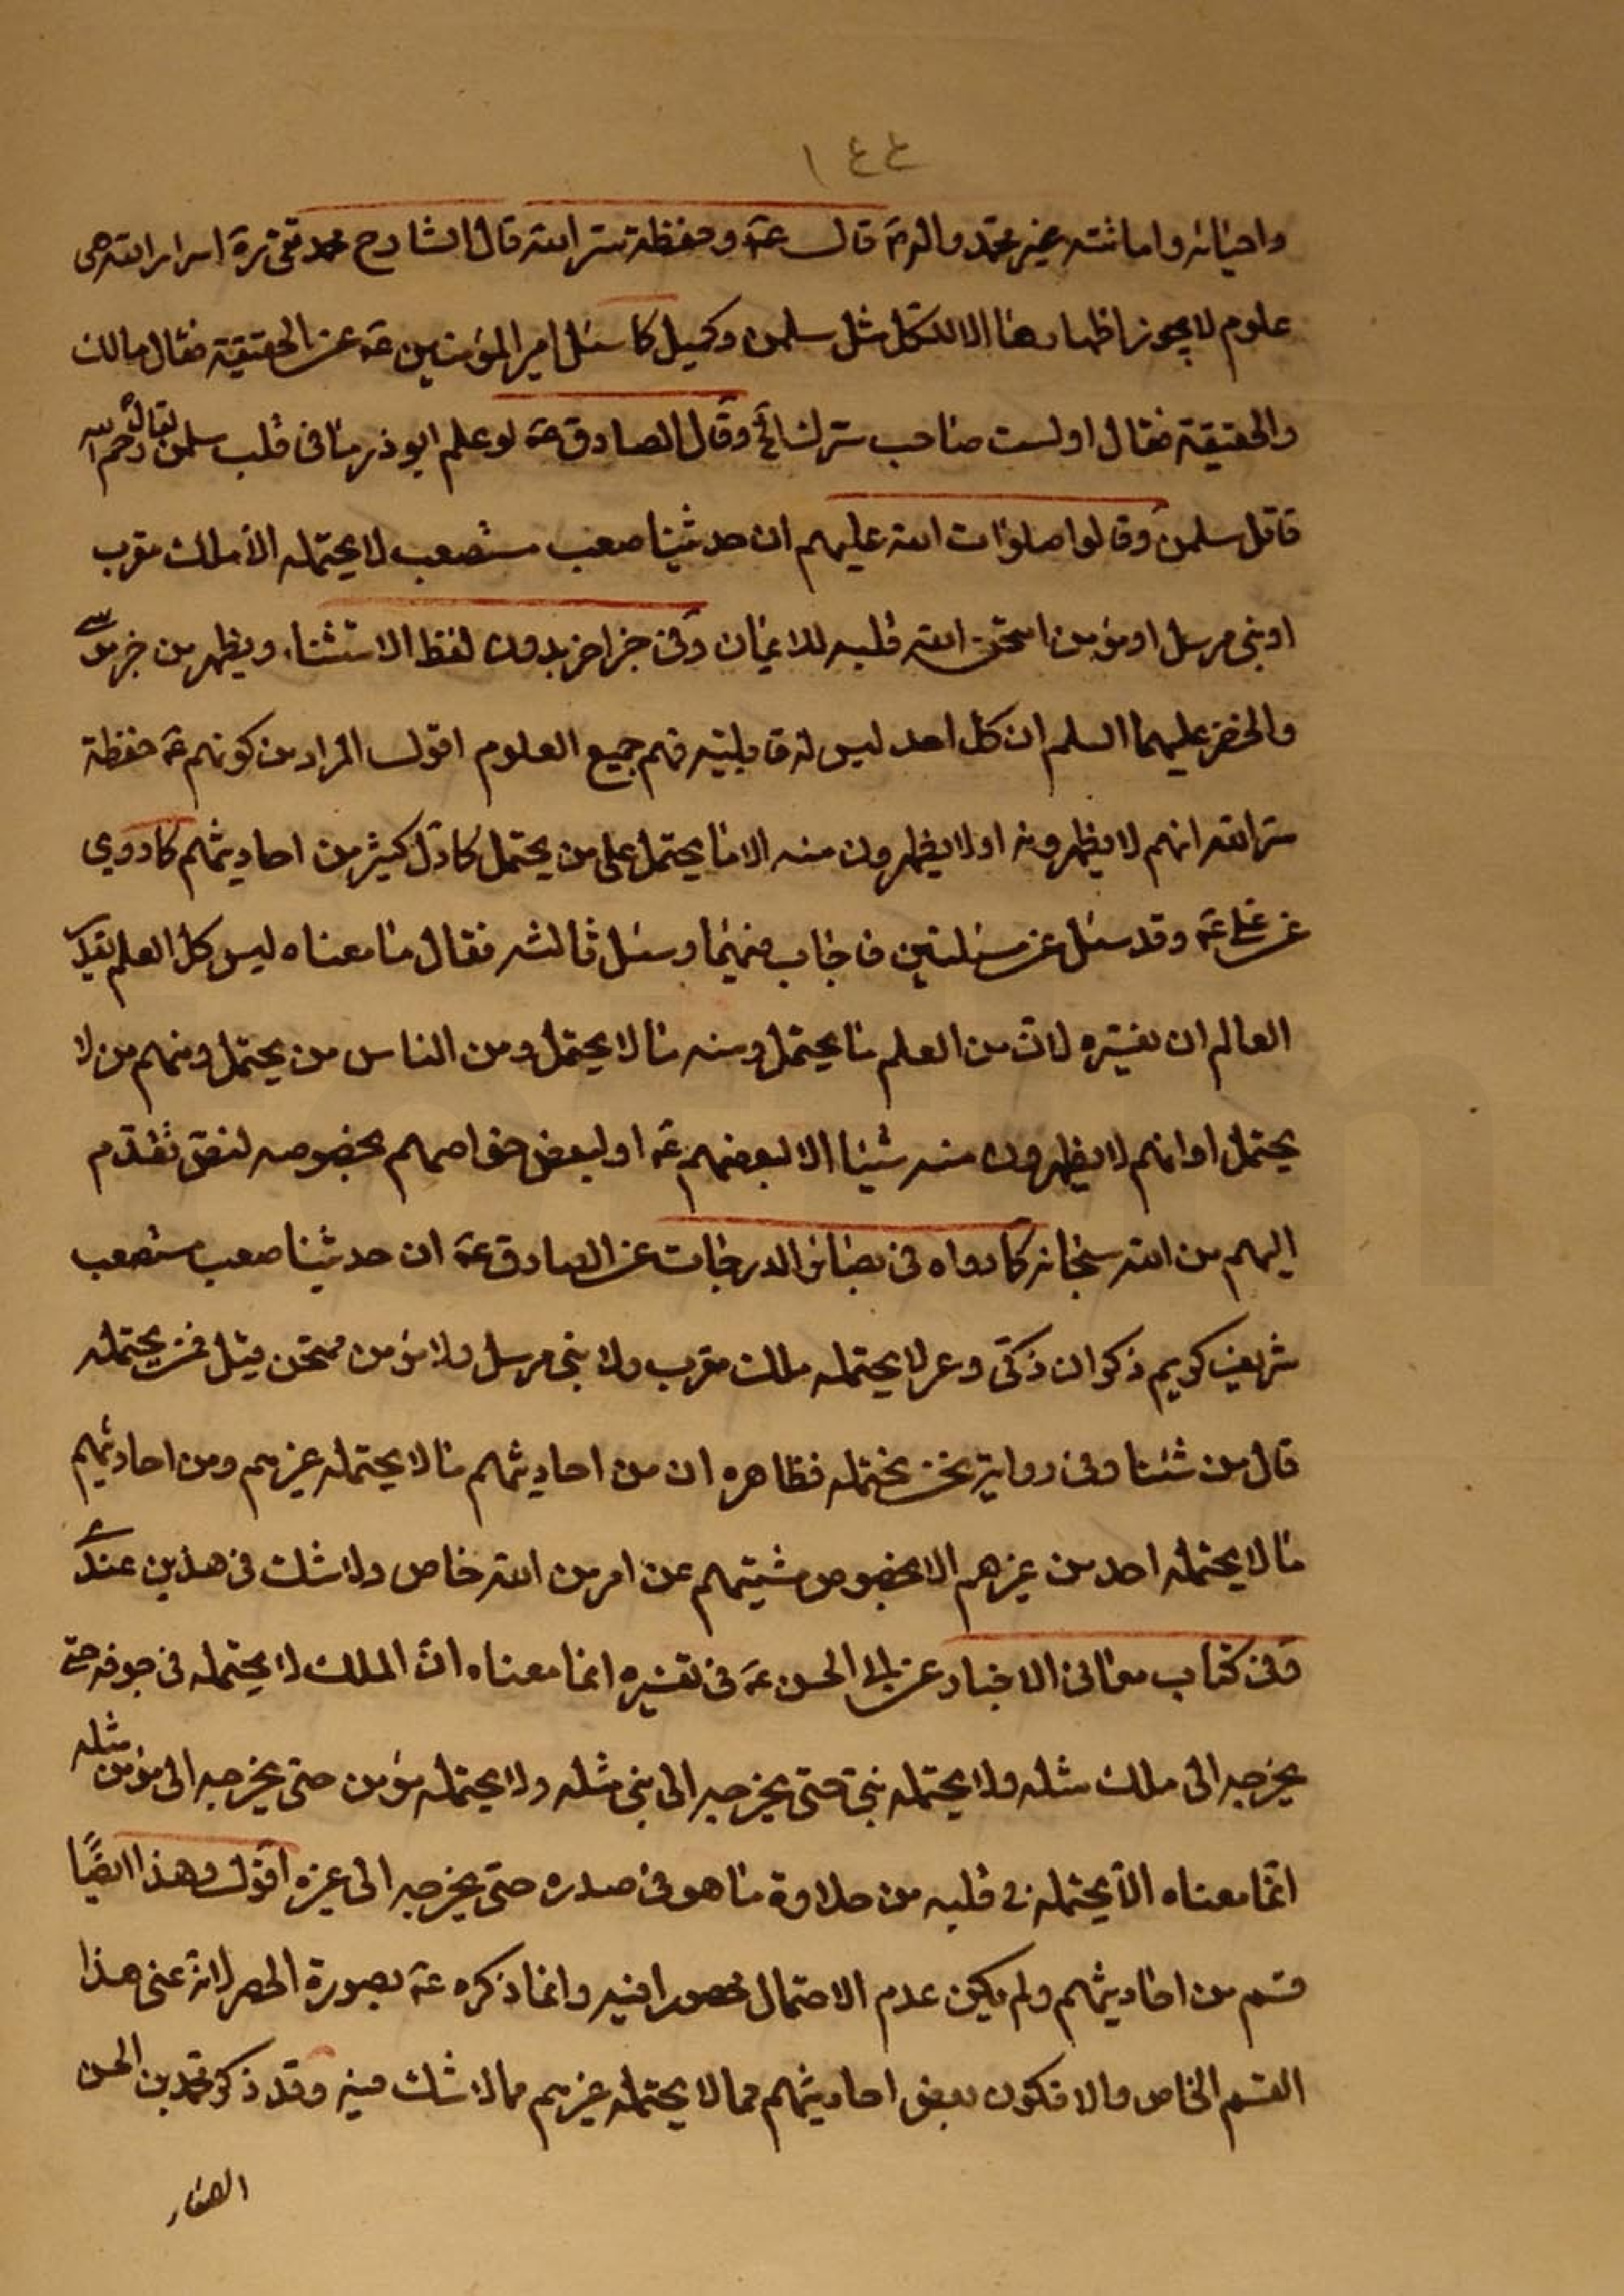 ١٤٤
واحيائه واماتته غير محمد واله ع قال ع وحفظة سر الله قال الشارح محمد تقى ره اسرار الله هى
علوم لا يجوز اظهارها الا للكمل مثل سلمن وكميل كما سئل امير المؤمنين ع عن الحقيقة فقال مالك
والحقيقة فقال اولست صاحب سرك قال وقال الصادق ع لو علم ابو ذر ما فى قلب سلمن لقال رحم الله
قاتل سلمن وقالوا صلوات الله عليهم ان حديثنا صعب مستصعب لا يحتمله الا ملك مقرب
او نبى مرسل او مؤمن امتحن الله قلبه للايمان وفى خبر اخر بدون لفظ الاستثناء ويظهر من خبر موسى
والخضر عليهما السلم ان كل احد ليس له قابلية فهم جميع العلوم اقول المراد من كونهم ع حفظة
سر الله انهم لا يظهرونه او لا يظهرون منه الا ما يحتمل على من يحتمل كما دل كثير من احاديثهم كما روى
عن على ع وقد سئل عن مسئلتين فاجاب فيهما وسئل ثالثه فقال ما معناه ليس كل العلم يقدر
العالم ان يفسره لان من العلم ما يحتمل ومنه ما لا يحتمل ومن الناس من يحتمل ومنهم من لا
يحتمل او انهم لا يظهرون منه شيئا الا لبعضهم ع او لبعض خواصهم بخصوصه لنص تقدم
اليهم من الله سبحانه كما رواه فى بصائر الدرجات عن الصادق ع ان حديثنا صعب مستصعب
شريف كريم ذكوان ذكى وعر لا يحتمله ملك مقرب ولا نبى مرسل ولا مؤمن ممتحن قيل فمن يحتمله
قال من شئنا وفى رواية نحن نحتمله فظاهره ان من احاديثهم ما لا يحتمله غيرهم ومن احاديثهم
ما لا يحتمله احد من غيرهم الا بخصوص مشيتهم عن امر من الله خاص ولا شك فى هذين عندى
وفى كتاب معانى الاخبار عن ابى الحسن ع فى تفسيره انما معناه ان الملك لا يحتمله فى جوفه حتى
يخرجه الى ملك مثله ولا يحتمله نبى حتى يخرجه الى نبى مثله ولا يحتمله مؤمن حتى يخرجه الى مؤمن مثله
انما معناه الا يحتمله فى قلبه من حلاوة ما هو فى صدره حتى يخرجه الى غيره اقول وهذا ايضًا
قسم من احاديثهم ولم يكن عدم الاحتمال محصورا فيه وانما ذكره ع بصورة الحصر لانه عنى هذا
القسم الخاص والا فكون بعض احاديثهم مما لا يحتمله غيرهم مما لا شك فيه وقد ذكر محمد بن الحسن
الصفار